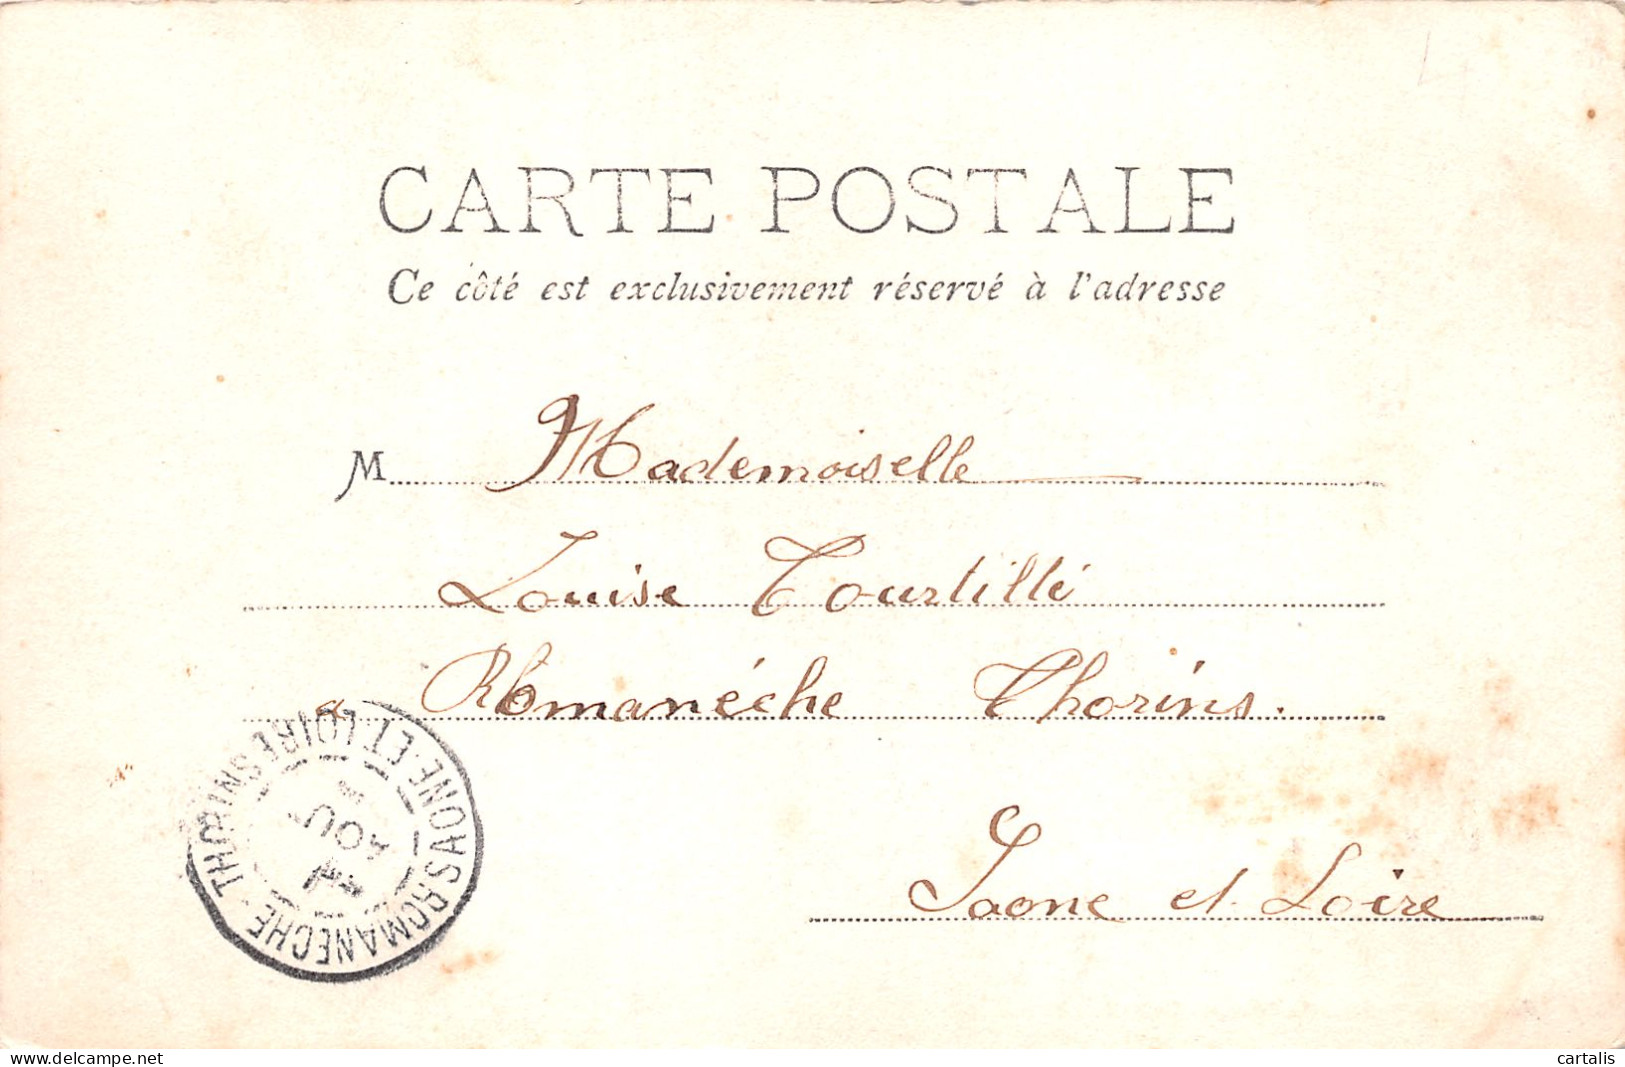 CARTE POSTALE
Ce côté est exclusivement réservé à l'adresse
M. Mademoiselle
Louise Tourtillé
a Romanéche Thorins.
Saone et Loire
ROMANECHE-THORINS SAONE-ET-LOIRE
AOU
www.delcampe.net
cartalis